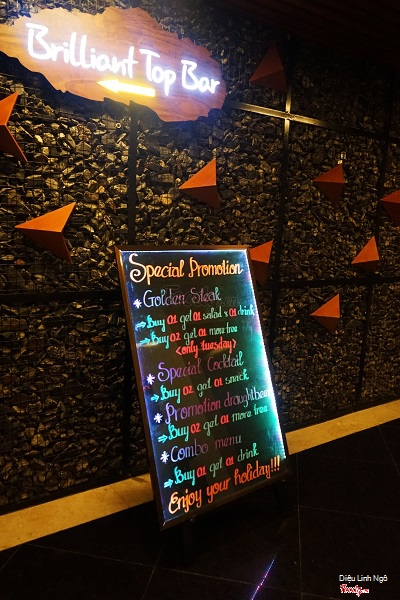 Brilliant Top Bar
Special Promotion
* Golden Steak
Buy 01 get 01 salad & 01 drink
Buy 02 get 01 more free
<only tuesday>
* Special Cocktail
Buy 02 get 01 snack
* Promotion draught beer
Buy 02 get 01 more free
* Combo menu
Buy 01 get 01 drink
Enjoy your holiday!!!
Diệu Linh Ngô
Foody.vn